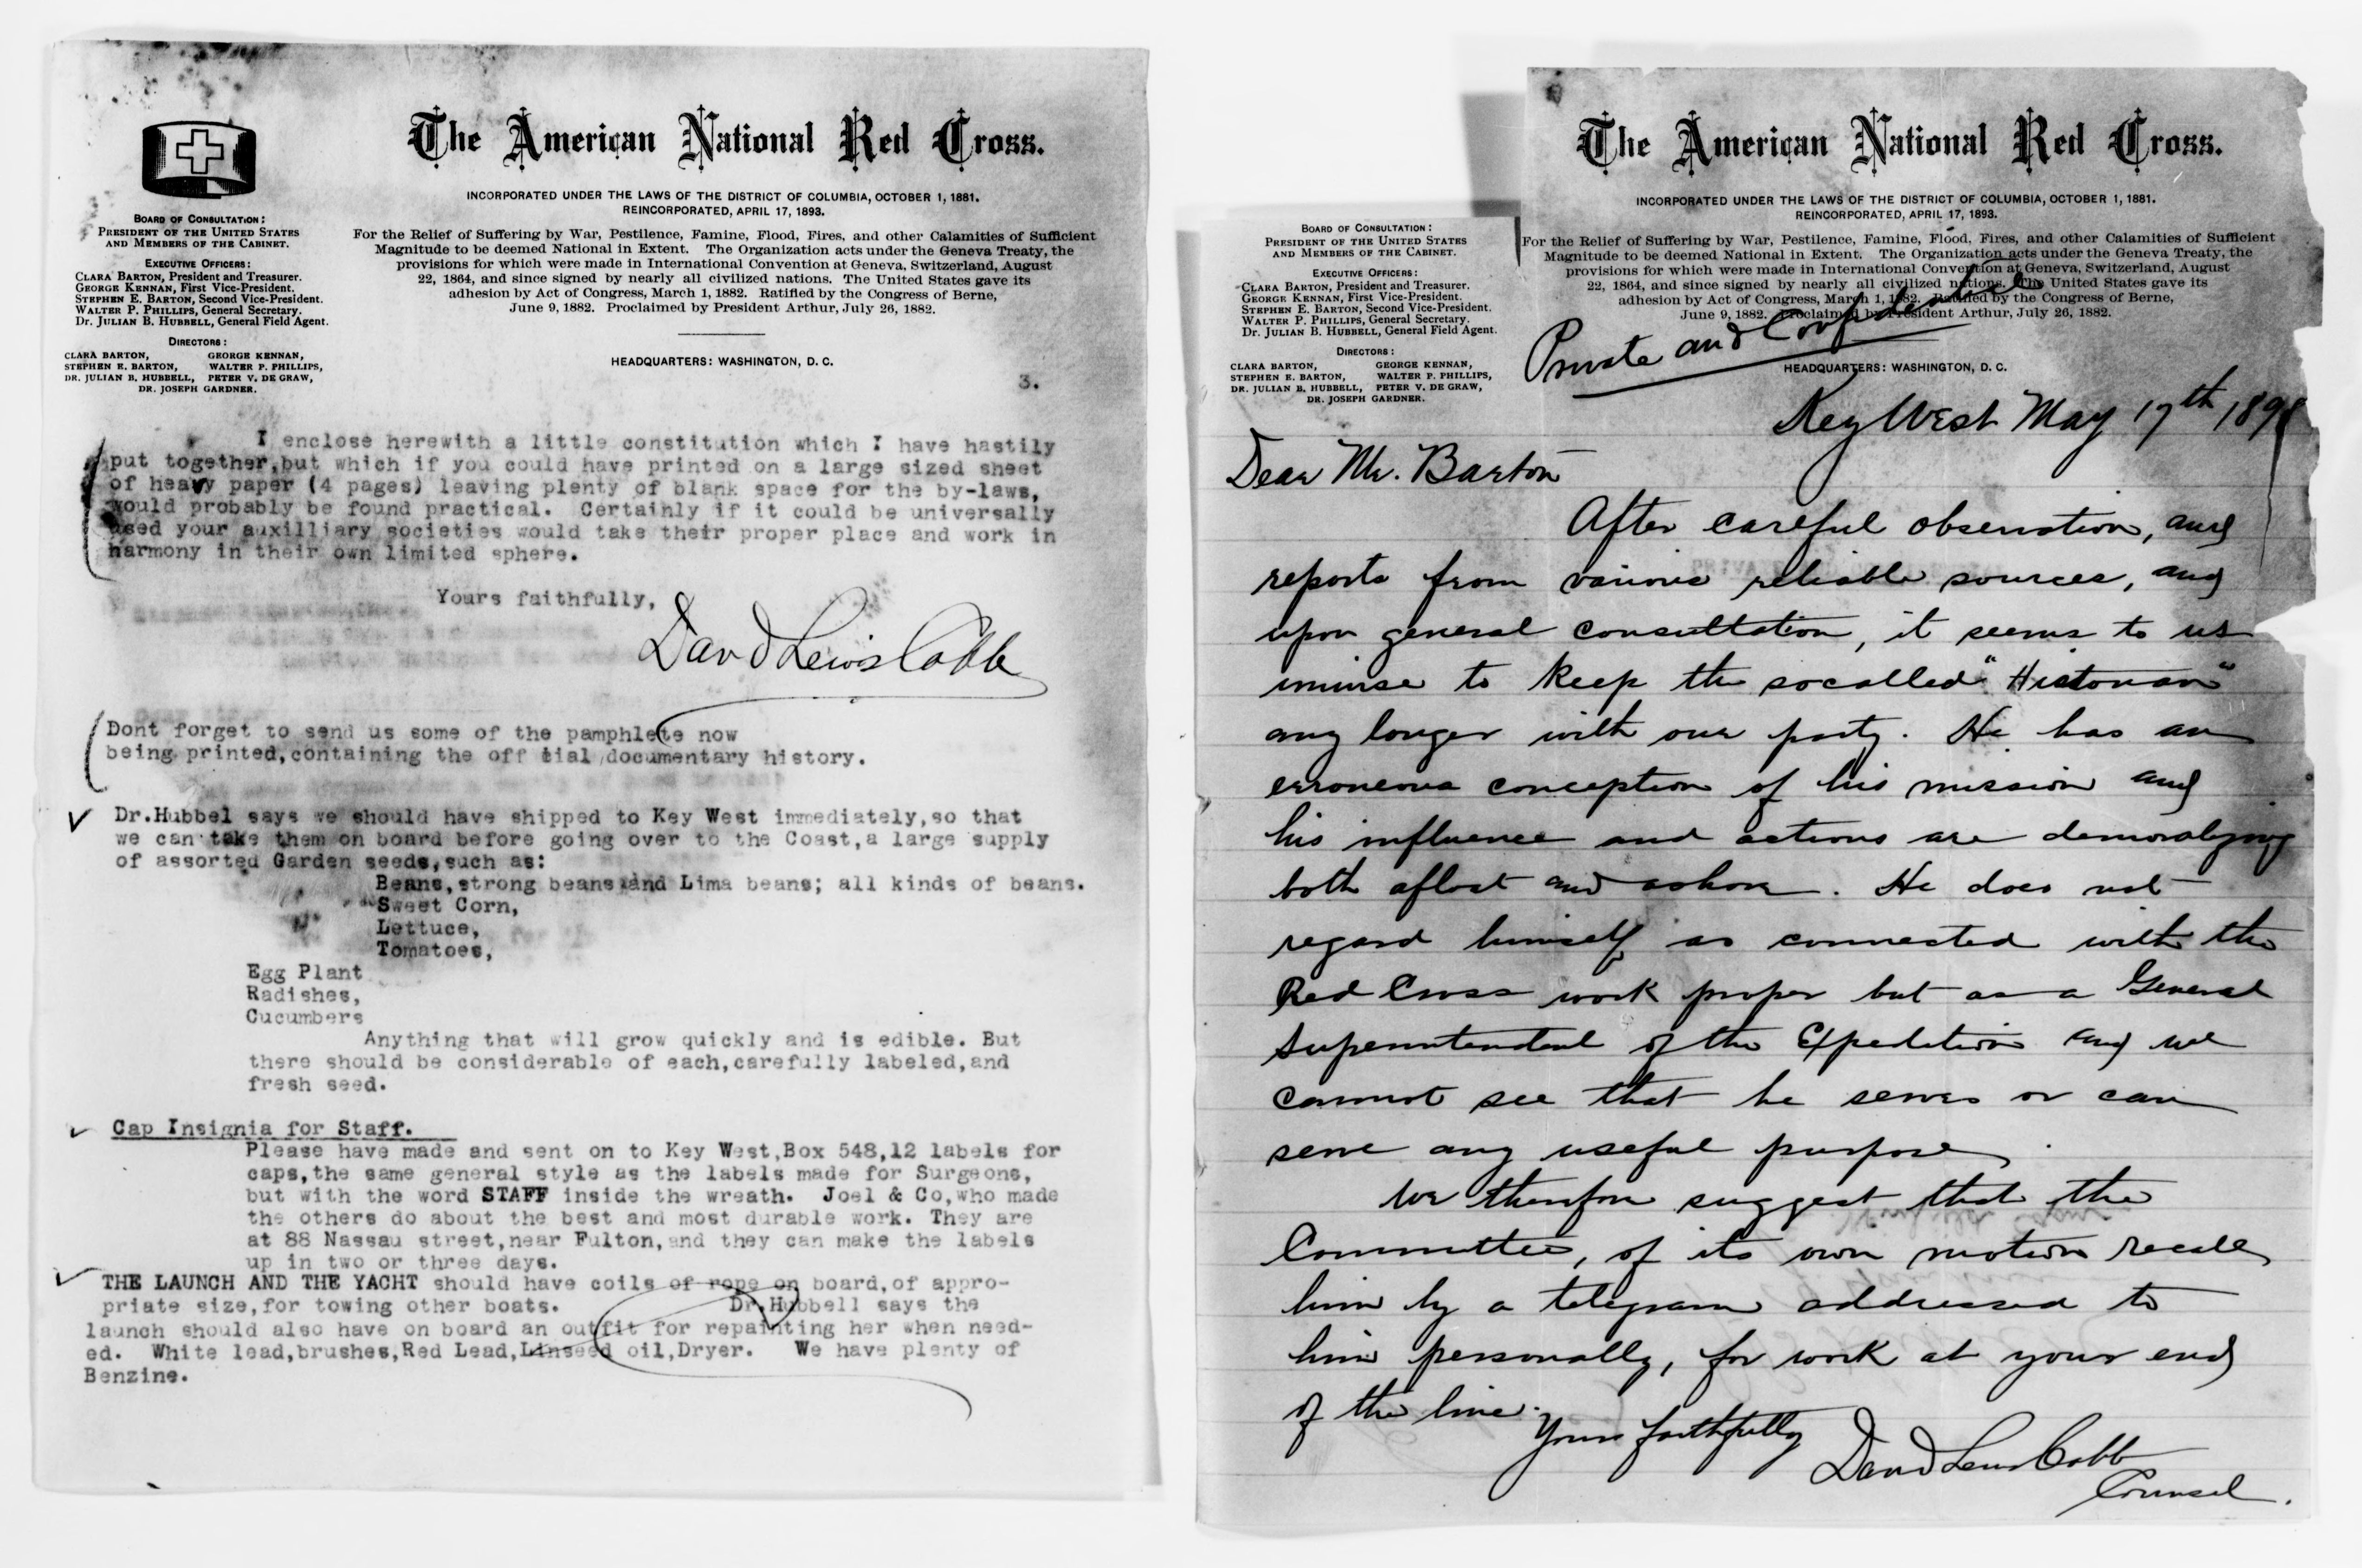 The American National Red Cross.
INCORPORATED UNDER THE LAWS OF THE DISTRICT OF COLUMBIA, OCTOBER 1, 1881.
REINCORPORATED, APRIL 17, 1893.
BOARD OF CONSULTATION:
PRESIDENT OF THE UNITED STATES
AND MEMBERS OF THE CABINET.
EXECUTIVE OFFICERS:
CLARA BARTON, President and Treasurer.
GEORGE KENNAN, First Vice-President.
STEPHEN E. BARTON, Second Vice-President.
WALTER P. PHILLIPS, General Secretary.
Dr. JULIAN B. HUBBELL, General Field Agent.
DIRECTORS:
CLARA BARTON, GEORGE KENNAN,
STEPHEN E. BARTON, WALTER P. PHILLIPS,
DR. JULIAN B. HUBBELL, PETER V. DE GRAW,
DR. JOSEPH GARDNER.
For the Relief of Suffering by War, Pestilence, Famine, Flood, Fires, and other Calamities of Sufficient
Magnitude to be deemed National in Extent. The Organization acts under the Geneva Treaty, the
provisions for which were made in International Convention at Geneva, Switzerland, August
22, 1864, and since signed by nearly all civilized nations. The United States gave its
adhesion by Act of Congress, March 1, 1882. Ratified by the Congress of Berne,
June 9, 1882. Proclaimed by President Arthur, July 26, 1882.
HEADQUARTERS: WASHINGTON, D. C.
3.
I enclose herewith a little constitution which I have hastily
put together,but which if you could have printed on a large sized sheet
of heavy paper (4 pages) leaving plenty of blank space for the by-laws,
would probably be found practical. Certainly if it could be universally
used your auxilliary societies would take their proper place and work in
harmony in their own limited sphere.
Yours faithfully,
David Lewis Cobb
Dont forget to send us some of the pamphlets now
being printed,containing the off cial documentary history.
Dr.Hubbel says we should have shipped to Key West immediately,so that
we can take them on board before going over to the Coast,a large supply
of assorted Garden seeds,such as:
Beans,strong beans and Lima beans; all kinds of beans.
Sweet Corn,
Lettuce,
Tomatoes,
Egg Plant
Radishes,
Cucumbers
Anything that will grow quickly and is edible. But
there should be considerable of each,carefully labeled,and
fresh seed.
Cap Insignia for Staff.
Please have made and sent on to Key West,Box 548,12 labels for
caps,the same general style as the labels made for Surgeons,
but with the word STAFF inside the wreath. Joel & Co,who made
the others do about the best and most durable work. They are
at 88 Nassau street,near Fulton,and they can make the labels
up in two or three days.
THE LAUNCH AND THE YACHT should have coils of rope on board,of appro-
priate size,for towing other boats. Dr.Hubbell says the
launch should also have on board an outfit for repainting her when need-
ed. White lead,brushes,Red Lead,Linseed oil,Dryer. We have plenty of
Benzine.
The American National Red Cross.
INCORPORATED UNDER THE LAWS OF THE DISTRICT OF COLUMBIA, OCTOBER 1, 1881.
REINCORPORATED, APRIL 17, 1893.
BOARD OF CONSULTATION:
PRESIDENT OF THE UNITED STATES
AND MEMBERS OF THE CABINET.
EXECUTIVE OFFICERS:
CLARA BARTON, President and Treasurer.
GEORGE KENNAN, First Vice-President.
STEPHEN E. BARTON, Second Vice-President.
WALTER P. PHILLIPS, General Secretary.
Dr. JULIAN B. HUBBELL, General Field Agent.
DIRECTORS:
CLARA BARTON, GEORGE KENNAN,
STEPHEN E. BARTON, WALTER P. PHILLIPS,
DR. JULIAN B. HUBBELL, PETER V. DE GRAW,
DR. JOSEPH GARDNER.
For the Relief of Suffering by War, Pestilence, Famine, Flood, Fires, and other Calamities of Sufficient
Magnitude to be deemed National in Extent. The Organization acts under the Geneva Treaty, the
provisions for which were made in International Convention at Geneva, Switzerland, August
22, 1864, and since signed by nearly all civilized nations. The United States gave its
adhesion by Act of Congress, March 1, 1882. Ratified by the Congress of Berne,
June 9, 1882. Proclaimed by President Arthur, July 26, 1882.
HEADQUARTERS: WASHINGTON, D. C.
Private and Confidential
Key West May 17th 1898
Dear Mr. Barton
After careful observation, and
reports from various reliable sources, and
upon general consultation, it seems to us
unwise to keep the socalled "Historian"
any longer with our party. He has an
erroneous conception of his mission and
his influence and actions are demoralizing
both afloat and ashore. He does not
regard himself as connected with the
Red Cross work proper but as a General
Superintendent of the Expedition and we
cannot see that he serves or can
serve any useful purpose.
We therefore suggest that the
Committee, of its own motion recall
him by a telegram addressed to
him personally, for work at your end
of the line.
Yours faithfully
David Lewis Cobb
Counsel.